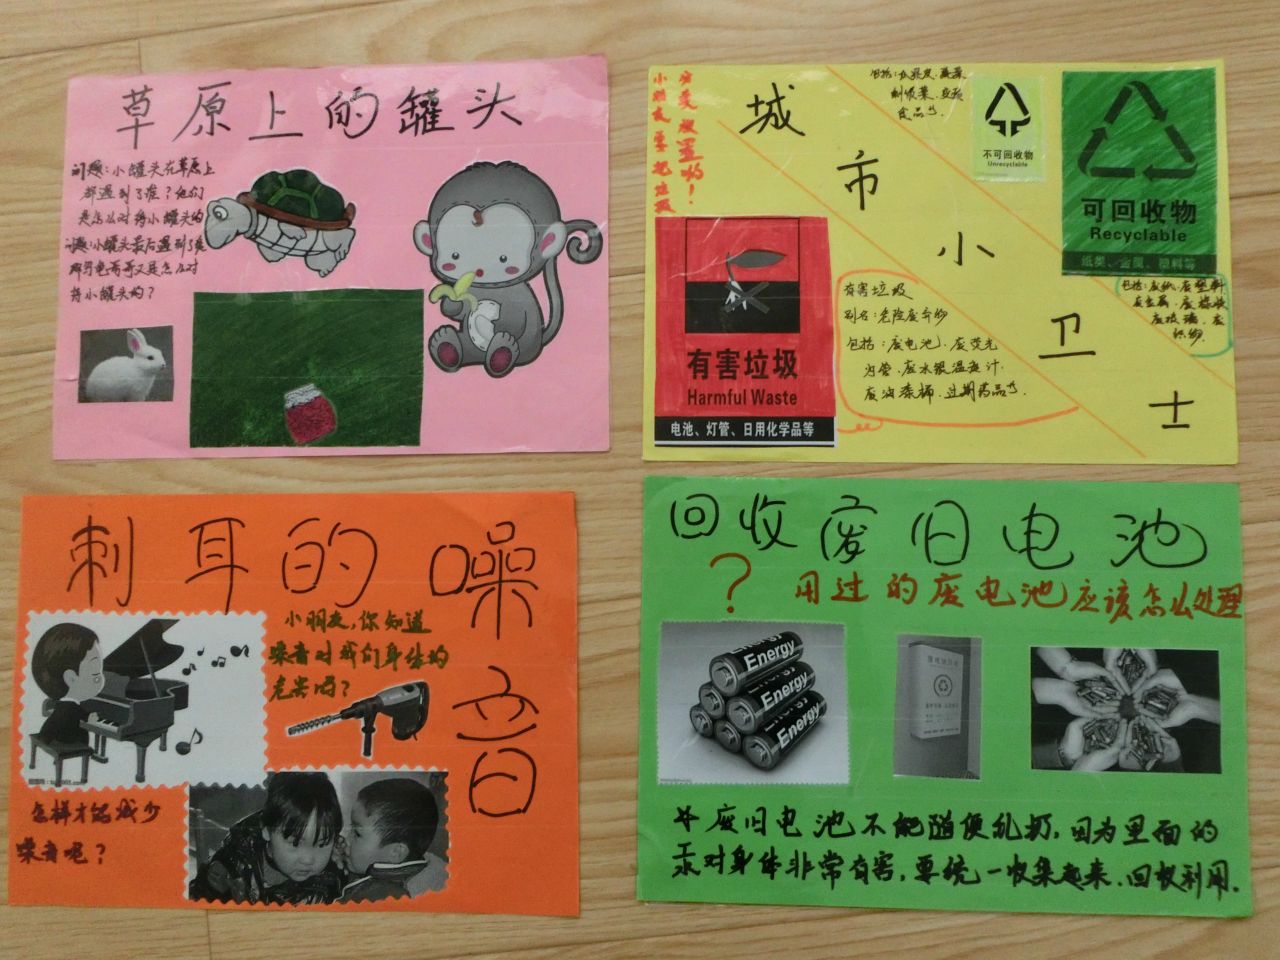 草原上的罐头
问题:小罐头在草原上
都遇到了谁?他们
是怎么对待小罐头的
问题:小罐头最后遇到了
又是怎么对
待小罐头的?
城市小卫士
小朋友要把垃圾
分类放置哟!
包括:瓜果皮、蔬菜
剩饭菜、
食品等
不可回收物
Unrecyclable
可回收物
Recyclable
纸类、金属、塑料等
包括:废纸、废塑料
废金属、废橡胶
废玻璃、废
织物
有害垃圾
Harmful Waste
电池、灯管、日用化学品等
有害垃圾
别名:危险废弃物
包括:废电池、废荧光
灯管、废水银温度计、
废油漆桶、过期药品等.
刺耳的噪音
小朋友,你知道
噪音对我们身体的
危害吗?
怎样才能减少
噪音呢?
回收废旧电池
? 用过的废电池应该怎么处理
Energy
Energy
Energy
废旧电池不能随便乱扔,因为里面的
汞对身体非常有害,要统一收集起来.回收利用.